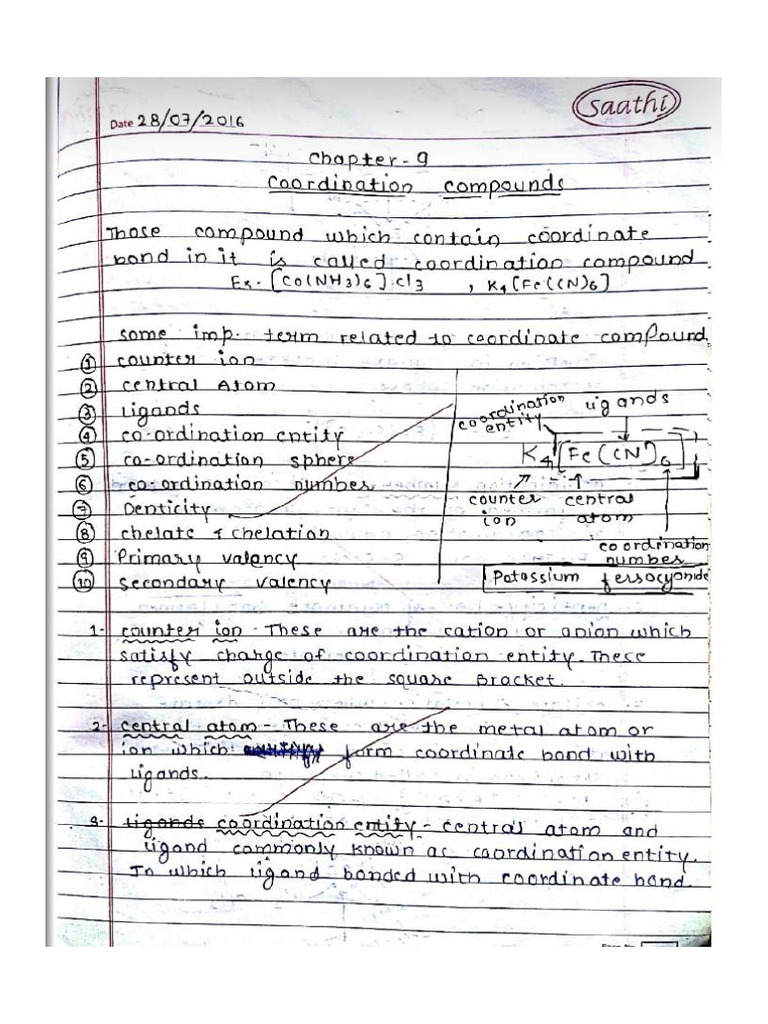 Saathi
Date 28/07/2016
Chapter-9
Coordination compounds
Those compound which contain coordinate
bond in it is called coordination compound
Ex- [Co(NH3)6]Cl3 , K4[Fe(CN)6]
some imp. term related to coordinate compound
① counter ion
② central Atom
③ Ligands
④ co-ordination entity
⑤ co-ordination sphere
⑥ co-ordination number
⑦ Denticity
⑧ chelate & chelation
⑨ Primary valency
⑩ secondary valency
coordination entity
ligands
K4[Fe(CN)6]
counter ion
central atom
coordination number
Potassium ferrocyanide
1- counter ion - These are the cation or anion which
satisfy charge of coordination entity. These
represent outside the square Bracket.
2- central atom - These are the metal atom or
ion which form coordinate bond with
Ligands.
3- ligands coordination entity - central atom and
ligand commonly known as coordination entity.
In which ligand bonded with coordinate bond.